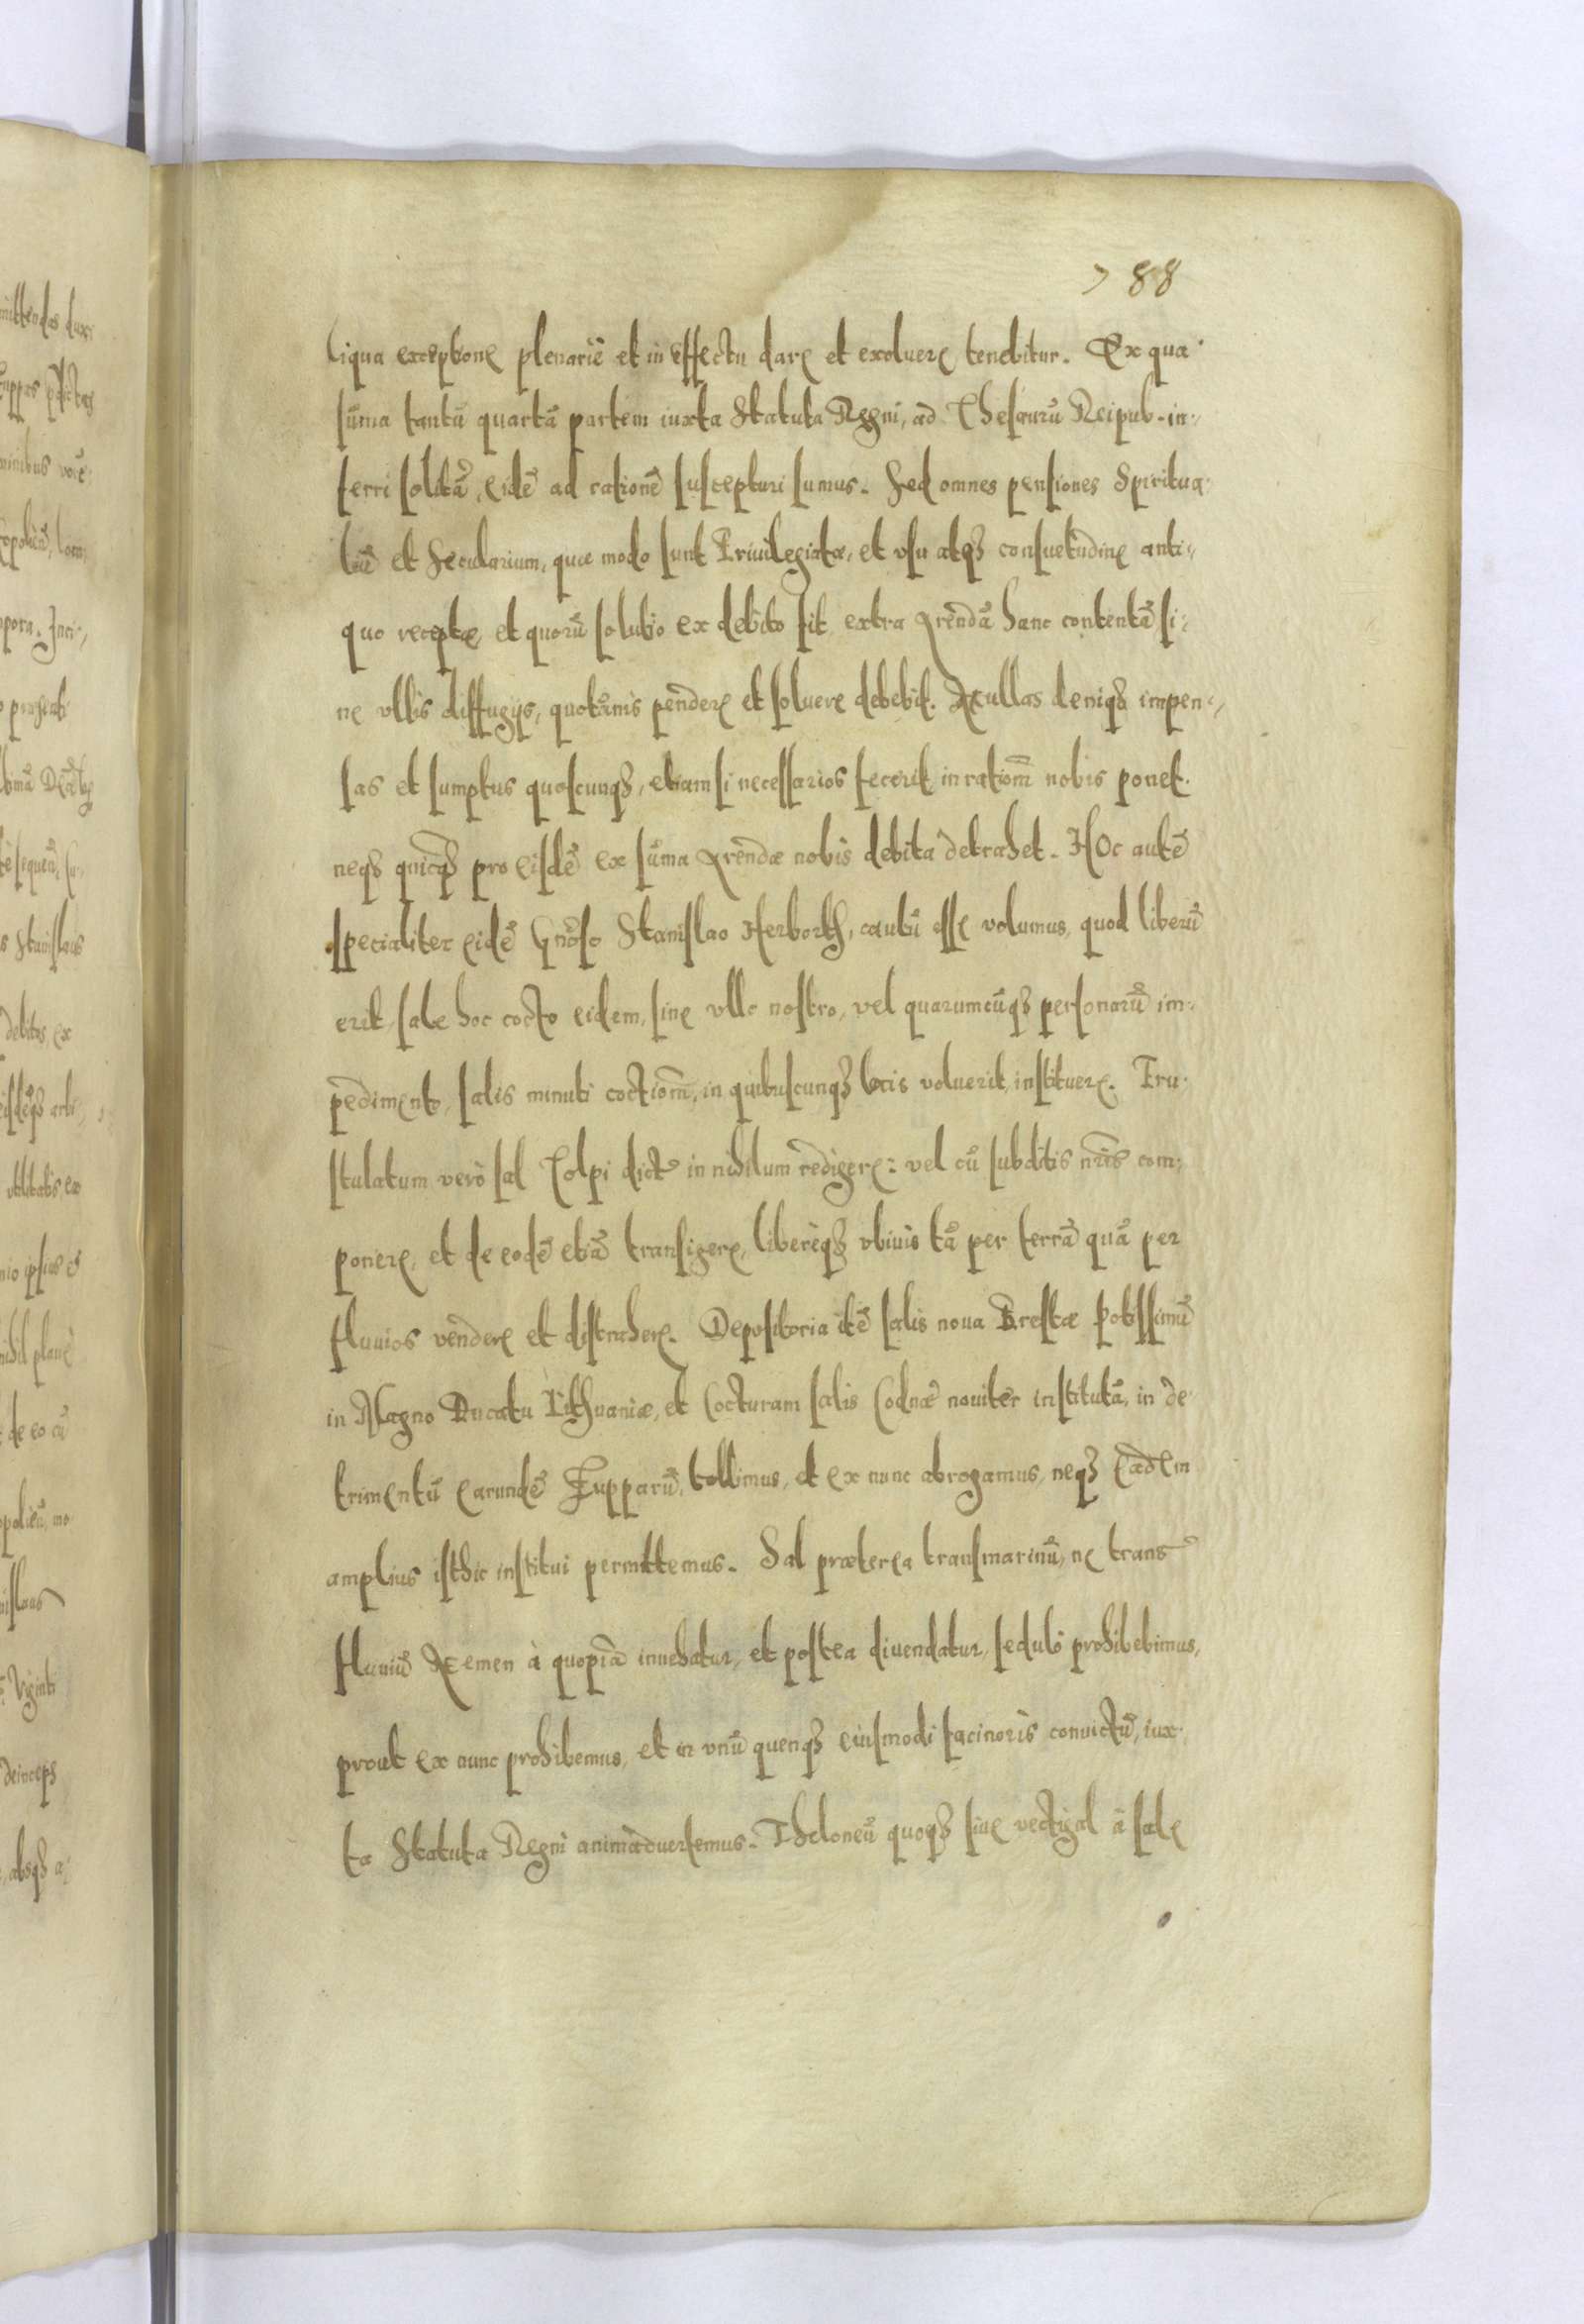 788
liqua exceptione plenariè et in effectu dare et exoluere tenebitur. Ex qua
sūma tantū quartā partem iuxta Statuta Regni, ad Thesaurū Reipub. in-
ferri solitā, eidē ad rationē suscepturi sumus. Sed omnes pensiones Spiritua-
liū et Secularium, quæ modo sunt Priuilegiatæ, et vsu atqȝ consuetudine anti-
quo receptæ, et quorū solutio ex debito sit, extra Arendā hanc contentā si-
ne vllis diffugijs, quotānis pendere et soluere debebit. Nullas deniqȝ impen-
sas et sumptus quoscunqȝ, etiam si necessarios fecerit, in rationē nobis ponet.
neqȝ quicqȝ pro eisdē ex sūma Arendæ nobis debita detrahet. Hoc autē
specialiter eidē Gnōso Stanislao Herborth, cautū esse volumus, quod liberū
erit, sale hoc cocto eidem, sine vllo nostro, vel quarumcūqȝ personarū im-
pedimento, salis minuti coctionē, in quibuscunqȝ locis voluerit, instituere. Fru-
stulatum verò sal Tolpi dictū in nihilum redigere: vel cū subditis nr̄is com-
ponere, et de eodē etiā transigere, liberèqȝ vbiuis tā per terrā quā per
fluuios vendere et distrahere. Depositoria itē salis noua Brestæ potissimū
in Magno Ducatu Lithuaniæ, et Cocturam salis Codnæ nouiter institutā, in de-
trimentū earundē Zupparū, tollimus, et ex nunc abrogamus, neqȝ eadem
amplius isthic institui permittemus. Sal præterea transmarinū, ne trans
fluuiū Nemen à quopiā inuehatur, et postea diuendatur, sedulò prohibebimus,
prout ex nunc prohibemus, et in vnū quenqȝ eiusmodi facinoris conuictū, iux-
ta Statuta Regni animaduertemus. Theloneū quoqȝ siue vectigal à sale